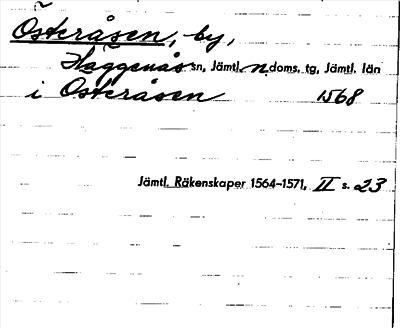 Österåsen, by,
Häggenås sn, Jämtl. n. doms. tg, Jämtl. län
i Osteråsen 1568
Jämtl. Räkenskaper 1564–1571, II s. 23